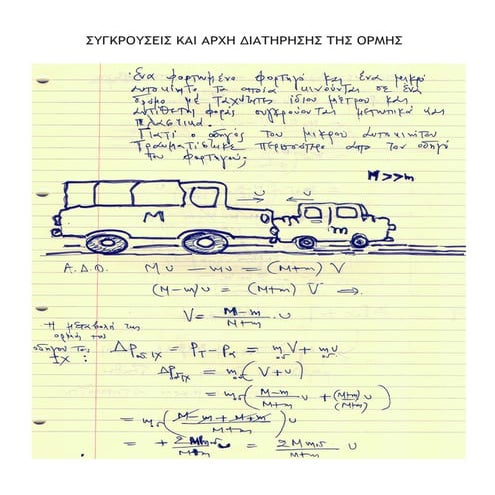 ΣΥΓΚΡΟΥΣΕΙΣ ΚΑΙ ΑΡΧΗ ΔΙΑΤΗΡΗΣΗΣ ΤΗΣ ΟΡΜΗΣ
Ένα φορτωμένο φορτηγό και ένα μικρό
αυτοκίνητο τα οποία κινούνται σε ένα
δρόμο με ταχύτητες ίδιου μέτρου και
αντίθετη φορά συγκρούονται μετωπικά και
πλαστικά.
Γιατί ο οδηγός του μικρού αυτοκινήτου
τραυματίστηκε περισσότερο από τον οδηγό
του φορτηγού;
M>>m
υ υ
M m
Α.Δ.Ο. Mυ − mυ = (M+m) V
(M−m)υ = (M+m) V →
V = (M−m)/(M+m) · υ
Η μεταβολή της
ορμής του
οδηγού του
ΙΧ:
= P_τ − P_α =
(V+υ)